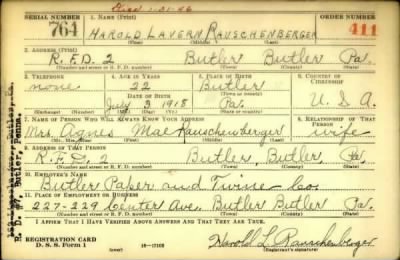 Died 1-31-46
SERIAL NUMBER 1. NAME (Print) ORDER NUMBER
764 HAROLD LAVERN RAUSCHENBERGER 411
(First) (Middle) (Last)
2. ADDRESS (Print)
R.F.D. 2 Butler Butler Pa.
(Number and street or R. F. D. number) (Town) (County) (State)
3. TELEPHONE 4. AGE IN YEARS 5. PLACE OF BIRTH 6. COUNTRY OF CITIZENSHIP
none 22 Butler
DATE OF BIRTH (Town or county)
July 3 1918 Pa. U.S.A.
(Exchange) (Number) (Mo.) (Day) (Yr.) (State or country)
7. NAME OF PERSON WHO WILL ALWAYS KNOW YOUR ADDRESS 8. RELATIONSHIP OF THAT PERSON
Mrs. Agnes Mae Rauschenberger wife
(Mr., Mrs., Miss) (First) (Middle) (Last)
9. ADDRESS OF THAT PERSON
R.F.D. 2 Butler, Butler, Pa.
(Number and street or R. F. D. number) (Town) (County) (State)
10. EMPLOYER'S NAME
Butler Paper and Twine Co.
11. PLACE OF EMPLOYMENT OR BUSINESS
227-229 Center Ave. Butler Butler Pa.
(Number and street or R. F. D. number) (Town) (County) (State)
I AFFIRM THAT I HAVE VERIFIED ABOVE ANSWERS AND THAT THEY ARE TRUE.
REGISTRATION CARD
D. S. S. Form 1 (over) 16—17105 Harold L Rauschenberger
R. D. #7, Butler, Penna.